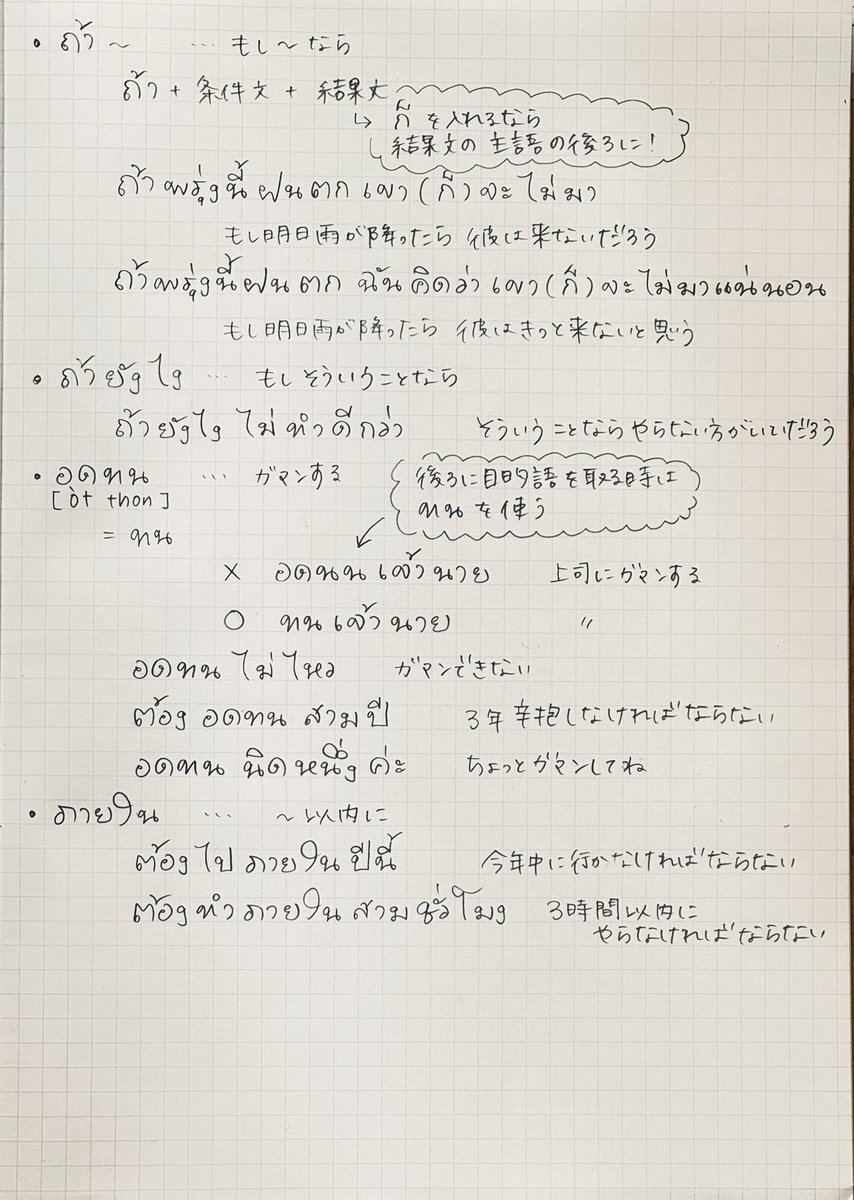 • ถ้า ~ … もし~なら
ถ้า + 条件文 + 結果文
↳ ก็ を入れるなら
結果文の主語の後ろに!
ถ้าพรุ่งนี้ฝนตก เขา (ก็) จะไม่มา
もし明日雨が降ったら 彼は来ないだろう
ถ้าพรุ่งนี้ฝนตก ฉันคิดว่า เขา (ก็) จะไม่มาแน่นอน
もし明日雨が降ったら 彼はきっと来ないと思う
• ถ้ายังไง … もしそういうことなら
ถ้ายังไง ไม่ทำดีกว่า そういうことならやらない方がいいだろう
• อดทน … ガマンする
[òt thon]
= ทน
後ろに目的語を取る時は
ทน を使う
× อดนนเจ้านาย 上司にガマンする
○ ทนเจ้านาย 〃
อดทนไม่ไหว ガマンできない
ต้องอดทนสามปี 3年辛抱しなければならない
อดทนนิดหนึ่งค่ะ ちょっとガマンしてね
• ภายใน … ~以内に
ต้องไปภายในปีนี้ 今年中に行かなければならない
ต้องทำภายในสามชั่วโมง 3時間以内に
やらなければならない